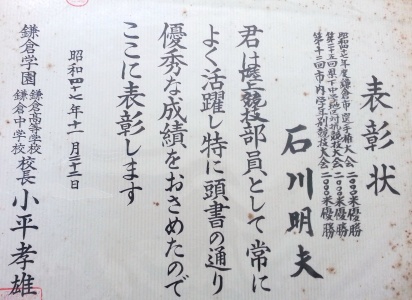 表彰状
昭和四十七年度鎌倉市選手権大会 二〇〇〇米優勝
第二十五回県下中学地区対抗競技大会 二〇〇〇米優勝
第二十二回市内学年別競技大会 二〇〇〇米優勝
石川明夫
君は陸上競技部員として常に
よく活躍し特に頭書の通り
優秀な成績をおさめたので
ここに表彰します
昭和四十七年十一月二十二日
鎌倉学園
鎌倉高等学校
鎌倉中学校
校長 小平孝雄